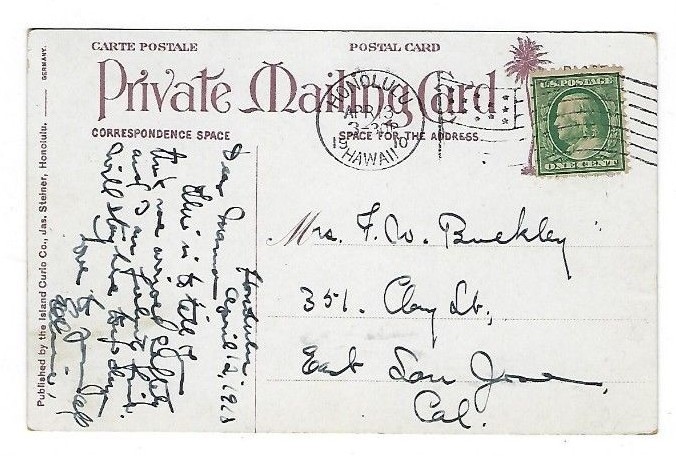 CARTE POSTALE POSTAL CARD
Private Mailing Card
CORRESPONDENCE SPACE SPACE FOR THE ADDRESS
HONOLULU
APR 13
1910
HAWAII
U.S. POSTAGE
ONE CENT
Honolulu
April 12, 1910
Dear Mama
this is to tell
that we arrived safely
and
will stay
love to
Mrs. F. W. Buckley
351. Clay St,
East San Jose,
Cal.
Published by the Island Curio Co., Jas. Steiner, Honolulu.
GERMANY.